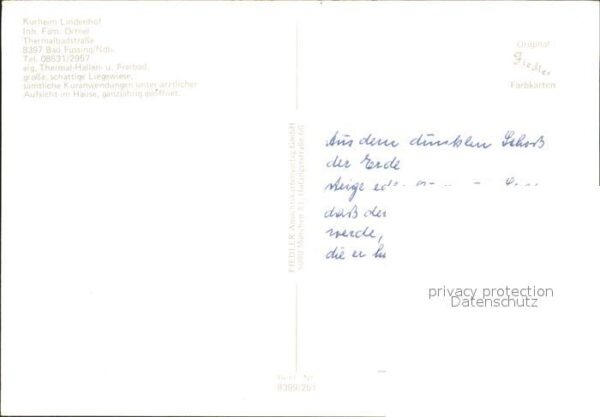 Kurheim Lindenhof
Inh. Fam. Ortner
Thermalbadstraße
8397 Bad Füssing/Ndb.
Tel. 08531/2957
eig. Thermal-Hallen- u. Freibad,
große, schattige Liegewiese,
sämtliche Kuranwendungen unter ärztlicher
Aufsicht im Hause, ganzjährig geöffnet.
Original
Fiedler
Farbkarten
FIEDLER Ansichtskartenverlag GmbH
8000 München 21,
Best. Nr.
8399/251
Aus dem dunklen Schoß
der Erde
steige
daß der
werde,
die er
privacy protection
Datenschutz